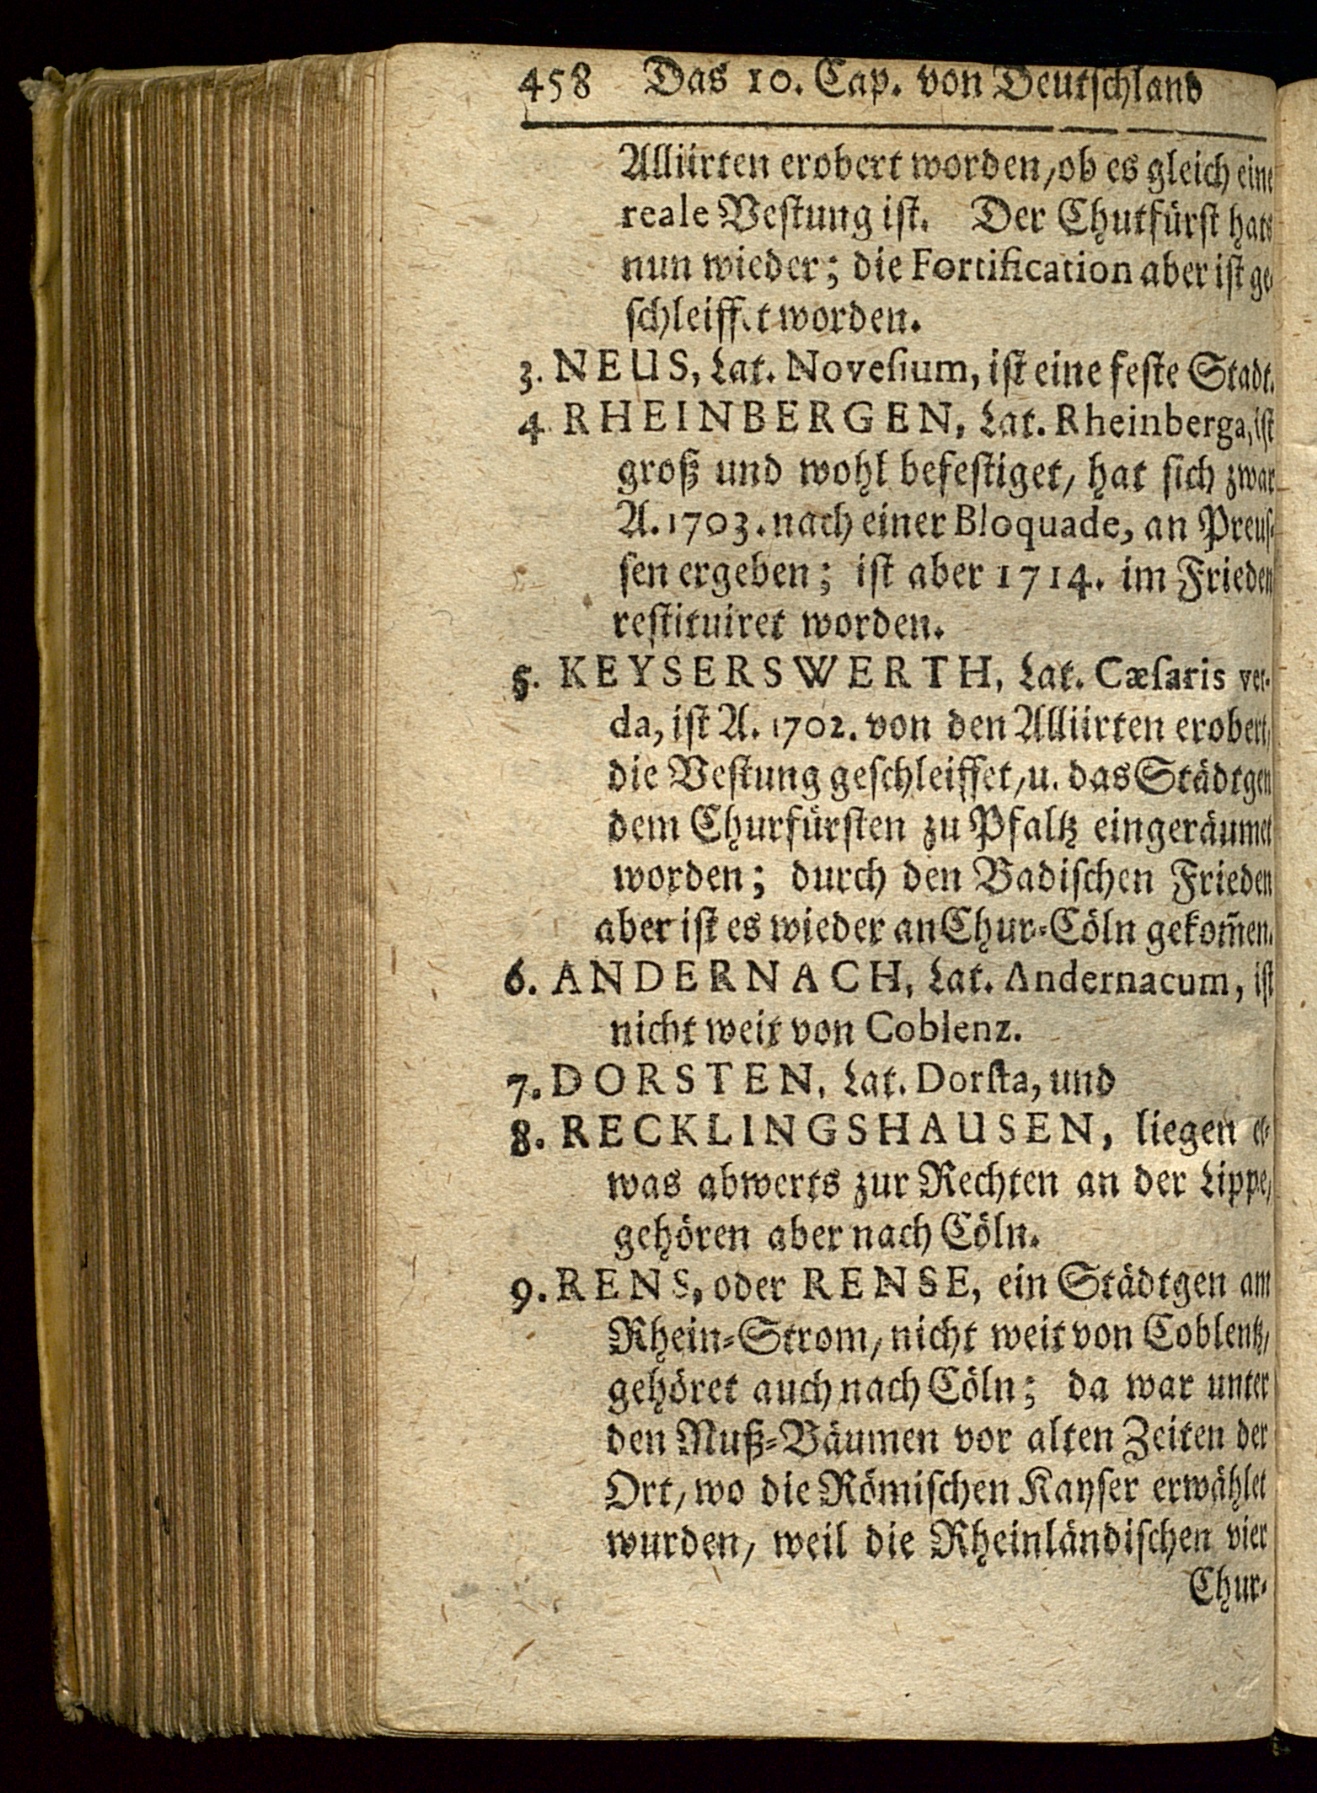 458 Das 10. Cap. von Deutschland
Alliirten erobert worden, ob es gleich eine
reale Vestung ist. Der Chutfürst hats
nun wieder; die Fortification aber ist ge-
schleiffet worden.
3. NEUS, Lat. Novesium, ist eine feste Stadt.
4. RHEINBERGEN, Lat. Rheinberga, ist
groß und wohl befestiget, hat sich zwar
A. 1703. nach einer Bloquade, an Preus-
sen ergeben; ist aber 1714. im Frieden
restituiret worden.
5. KEYSERSWERTH, Lat. Cæsaris ver-
da, ist A. 1702. von den Alliirten erobert,
die Vestung geschleiffet, u. das Städtgen
dem Churfürsten zu Pfaltz eingeräumet
worden; durch den Badischen Frieden
aber ist es wieder an Chur-Cöln gekom̃en.
6. ANDERNACH, Lat. Andernacum, ist
nicht weit von Coblenz.
7. DORSTEN, Lat. Dorsta, und
8. RECKLINGSHAUSEN, liegen et-
was abwerts zur Rechten an der Lippe,
gehören aber nach Cöln.
9. RENS, oder RENSE, ein Städtgen am
Rhein-Strom, nicht weit von Coblentz,
gehöret auch nach Cöln; da war unter
den Nuß-Bäumen vor alten Zeiten der
Ort, wo die Römischen Kayser erwählet
wurden, weil die Rheinländischen vier
Chur-